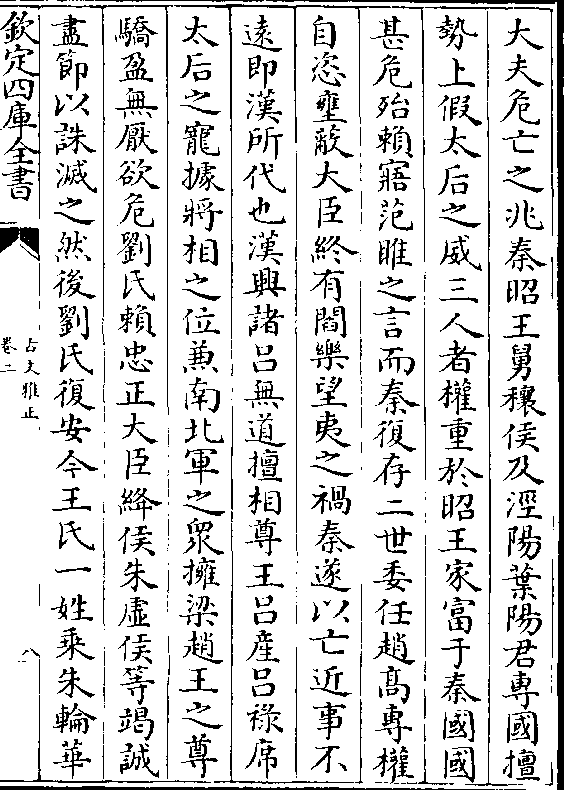 大夫危亡之兆秦昭王舅穰侯及涇陽葉陽君專國擅
勢上假太后之威三人者權重於昭王家富于秦國國
甚危殆賴寤范睢之言而秦復存二世委任趙髙專權
自恣壅蔽大臣終有閻樂望夷之禍秦遂以亡近事不
逺即漢所代也漢興諸吕無道擅相尊王吕産吕祿席
太后之寵據將相之位兼南北軍之衆擁梁趙王之尊
驕盈無厭欲危劉氏賴忠正大臣絳侯朱虛侯等竭誠
盡節以誅滅之然後劉氏復安今王氏一姓乘朱輪華
欽定四庫全書
古文雅正
卷二
八